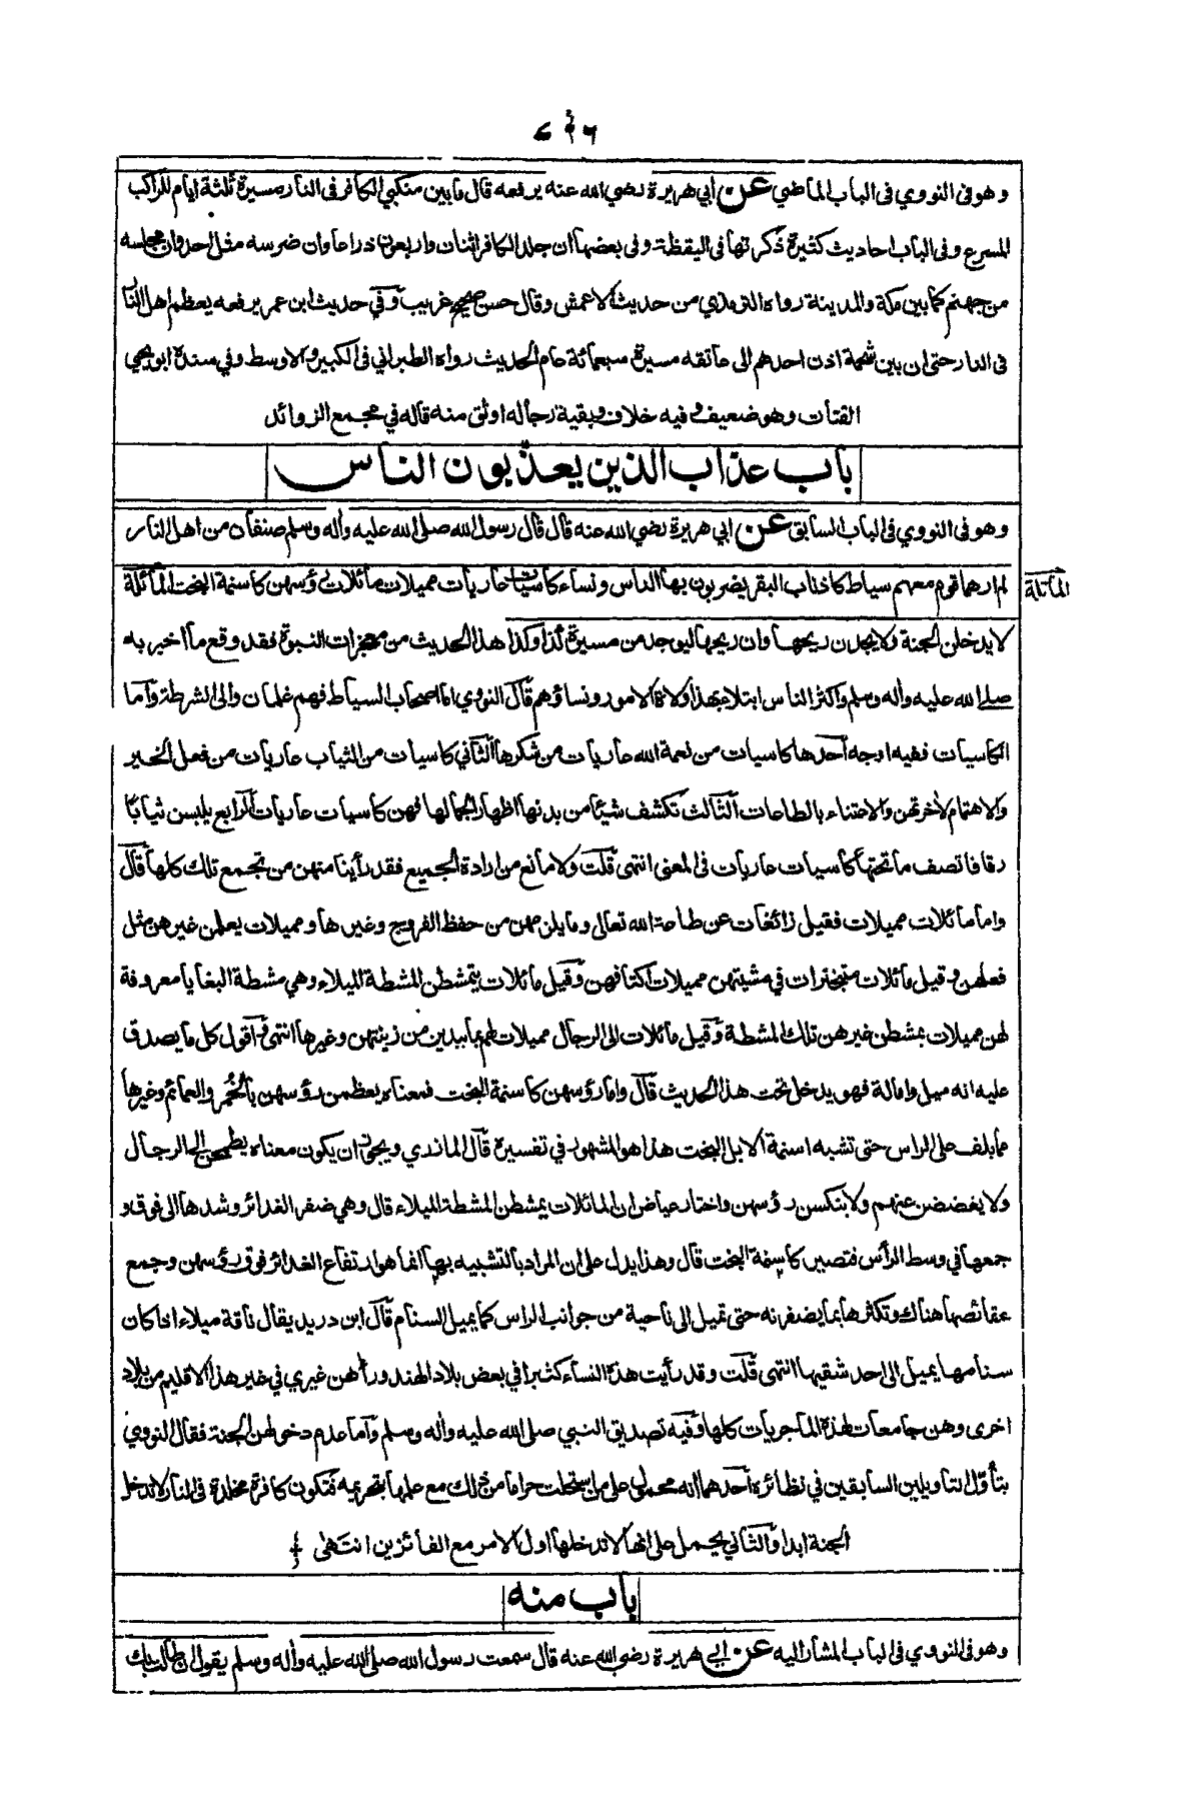 وهو فى النووي فى الباب الماضي عن أبي هريرة رضي الله عنه يرفعه قال ما بين منكبي الكافر فى النار مسيرة ثلثة ايام للراكب
المسرع وفى الباب احاديث كثيرة ذكرتها فى اليقظة وفى بعضها ان جلد الكافر اثنان واربعون ذراعا وان ضرسه مثل احد وان مجلسه
من جهنم كما بين مكة والمدينة رواه الترمذي من حديث الاعمش وقال حسن صحيح غريب وفي حديث ابن عمر يرفعه يعظم اهل النار
فى النار حتى ان بين شحمة اذن احدهم الى عاتقه مسيرة سبعمائة عام الحديث رواه الطبراني فى الكبير والاوسط وفي سنده ابو يحيى
القتات وهو ضعيف وفيه خلاف وبقية رجاله اوثق منه قاله في مجمع الزوائد
باب عذاب الذين يعذّبون الناس
وهو فى النووي فى الباب السابق عن ابي هريرة رضي الله عنه قال قال رسول الله صلى الله عليه وأله وسلم صنفان من اهل النار
لم ارهما قوم معهم سياط كاذناب البقر يضربون بها الناس ونساء كاسيات عاريات مميلات مائلات رؤسهن كاسنمة البخت المائلة
المائلة
لا يدخلن الجنة ولا يجدن ريحها وان ريحها ليوجد من مسيرة كذا وكذا هذا الحديث من معجزات النبوة فقد وقع ما اخبر به
صلى الله عليه وأله وسلم واكثر الناس ابتلاء بهذا ولاة الامور ونساؤهم قال النووي اما اصحاب السياط فهم غلمان والى الشرطة وأما
الكاسيات ففيه اوجه أحدها كاسيات من نعمة الله عاريات من شكرها الثاني كاسيات من الثياب عاريات من فعل الخير
والاهتمام لأخرتهن والاعتناء بالطاعات الثالث تكشف شيئا من بدنها اظهارا لجمالها فهن كاسيات عاريات الرابع يلبسن ثيابًا
رقاقا تصف ما تحتها كاسيات عاريات فى المعنى انتهى قلت ولا مانع من ارادة الجميع فقد رأينا منهن من تجمع تلك كلها قال
واما مائلات مميلات فقيل زائغات عن طاعة الله تعالى وما يلزمهن من حفظ الفروج وغيرها ومميلات يعلمن غيرهن مثل
فعلهن وقيل مائلات متبخترات في مشيتهن مميلات اكتافهن وقيل مائلات يتمشطن المشطة الميلاء وهي مشطة البغايا معروفة
لهن مميلات يمشطن غيرهن تلك المشطة وقيل مائلات الى الرجال مميلات لهم بما يبدين من زينتهن وغيرها انتهى اقول كل ما يصدق
عليه انه ميل وامالة فهو يدخل تحت هذا الحديث قال واما رؤسهن كاسنمة البخت فمعناه يعظمن رؤسهن بالخُمُر والعمائم وغيرها
مما يلف على الراس حتى تشبه اسنمة الابل البخت هذا هو المشهور في تفسيره قال المازري ويجوز ان يكون معناه يطمحن الى الرجال
ولا يغضضن عنهم ولا ينكسن رؤسهن واختار عياض ان المائلات يمشطن المشطة الميلاء قال وهي ضفر الغدائر وشدها الى فوق و
جمعها في وسط الرأس فتصير كاسنمة البخت قال وهذا يدل على ان المراد بالتشبيه بها انما هو ارتفاع الغدائر فوق رؤسهن وجمع
عقائصها هناك وتكثرها بما يضفرنه حتى تميل الى ناحية من جوانب الراس كما يميل السنام قال ابن دريد يقال ناقة ميلاء اذا كان
سنامها يميل الى احد شقيها انتهى قلت وقد رأيت هذه النساء كثيرا في بعض بلاد الهند ورأهن غيري في غير هذا الاقليم من بلاد
اخرى وهن جامعات لهذه الماجريات كلها وفيه تصديق النبي صلى الله عليه وأله وسلم وأما عدم دخولهن الجنة فقال النووي
يتأول التاويلين السابقين في نظائره أحدهما انه محمول على من استحلت حراما من ذلك مع علمها بتحريمه فتكون كافرة مخلدة فى النار لا تدخل
الجنة ابدا والثاني يحمل على انها لا تدخلها اول الامر مع الفائزين انتهى
باب منه
وهو فى النووي فى الباب المشار اليه عن ابي هريرة رضي الله عنه قال سمعت رسول الله صلى الله عليه وأله وسلم يقول ان طالت بك